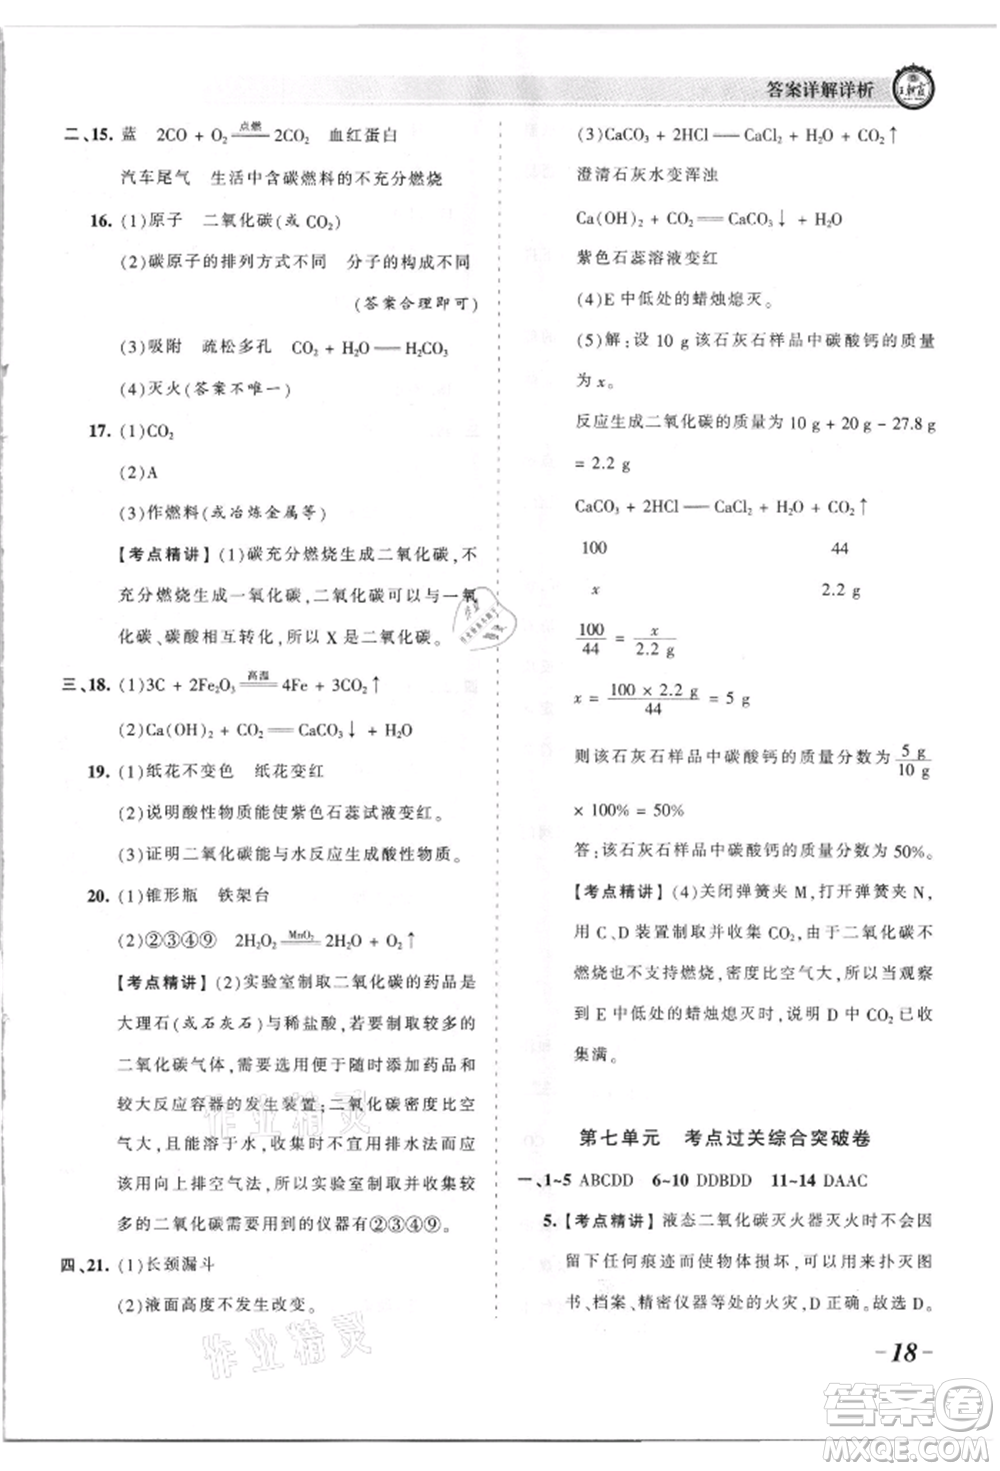 答案详解详析
王朝霞
二、15. 蓝 2CO + O₂ 点燃══ 2CO₂ 血红蛋白
汽车尾气 生活中含碳燃料的不充分燃烧
16. (1)原子 二氧化碳(或 CO₂)
(2)碳原子的排列方式不同 分子的构成不同
(答案合理即可)
(3)吸附 疏松多孔 CO₂ + H₂O══H₂CO₃
(4)灭火(答案不唯一)
17. (1)CO₂
(2)A
(3)作燃料(或冶炼金属等)
【考点精讲】(1)碳充分燃烧生成二氧化碳,不
充分燃烧生成一氧化碳,二氧化碳可以与一氧
化碳、碳酸相互转化,所以 X 是二氧化碳。
三、18. (1)3C + 2Fe₂O₃ 高温══ 4Fe + 3CO₂↑
(2)Ca(OH)₂ + CO₂══CaCO₃↓ + H₂O
19. (1)纸花不变色 纸花变红
(2)说明酸性物质能使紫色石蕊试液变红。
(3)证明二氧化碳能与水反应生成酸性物质。
20. (1)锥形瓶 铁架台
(2)②③④⑨ 2H₂O₂ MnO₂══ 2H₂O + O₂↑
【考点精讲】(2)实验室制取二氧化碳的药品是
大理石(或石灰石)与稀盐酸,若要制取较多的
二氧化碳气体,需要便于随时添加药品和
较大反应容器的发生装置;二氧化碳密度比空气
大,且能溶于水,收集时不能用排水法而应
该用向上排空气法,所以实验室制取并收集较
多的二氧化碳需要用到的仪器有②③④⑨。
四、21. (1)长颈漏斗
(2)液面高度不发生改变。
(3)CaCO₃ + 2HCl══CaCl₂ + H₂O + CO₂↑
澄清石灰水变浑浊
Ca(OH)₂ + CO₂══CaCO₃↓ + H₂O
紫色石蕊溶液变红
(4)E 中低处的蜡烛熄灭。
(5)解:设 10 g 该石灰石样品中碳酸钙的质量
为 x。
反应生成二氧化碳的质量为 10 g + 20 g - 27.8 g
= 2.2 g
CaCO₃ + 2HCl══CaCl₂ + H₂O + CO₂↑
100 44
x 2.2 g
100/44 = x/2.2 g
x = 100 × 2.2 g/44 = 5 g
则该石灰石样品中碳酸钙的质量分数为 5 g/10 g
× 100% = 50%
答:该石灰石样品中碳酸钙的质量分数为 50%。
【考点精讲】(4)关闭弹簧夹 M,打开弹簧夹 N,
用 C、D 装置制取并收集 CO₂,由于二氧化碳不
燃烧也不支持燃烧,密度比空气大,所以当观察
到 E 中低处的蜡烛熄灭时,说明 D 中 CO₂ 已收
集满。
第七单元 考点过关综合突破卷
一、1~5 ABCDD 6~10 DDBDD 11~14 DAAC
5.【考点精讲】液态二氧化碳灭火器灭火时不会因
留下任何痕迹而使物体损坏,可以用来扑灭图
书、档案、精密仪器等处的火灾,D 正确。故选 D。
作业精灵
作业精灵
- 18 -
答案圈
MXQE.COM